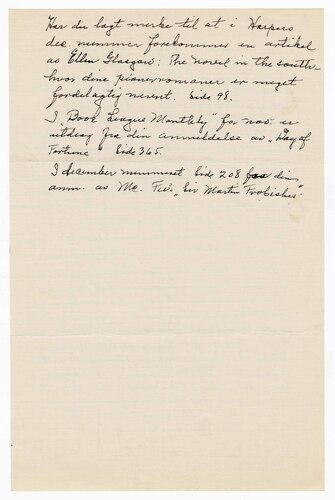 Har du lagt merke til at i Harpers
dec. nummer forekommer en artikel
av Ellen Glasgow: The novel in the south
hvor dine pionerromaner er meget
fordelagtig nevnt. Side 98.
I „Book League Monthly" for nov. er
utdrag fra din anmeldelse av „Day of
Fortune" Side 365.
I december nummeret Side 208 fra din
anm. av Mc. Fee's „Sir Martin Frobisher".